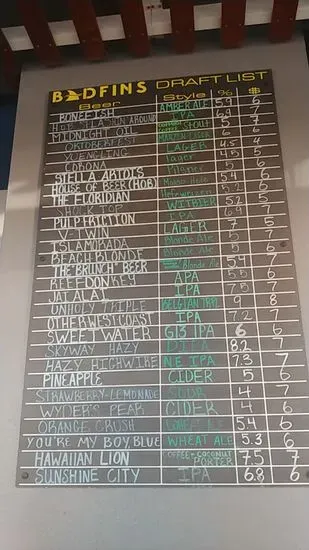 BADFINS DRAFT LIST
Beer Style % $
BONEFISH AMBER ALE 5.9 6
HOB SKA SKIN AROUND IPA 6.9 7
MIDNIGHT OIL STOUT 5 7
OKTOBERFEST 6 6
YUENGLING LAGER 4.5 4
CORONA lager 4.5 5
STELLA ARTOIS Pilsner 5 6
HOUSE OF BEER (HOB) 5.4 6
THE FLORIDIAN Hefeweizen 5.2 6
SHOCK TOP WITBIER 5.2 5
PULP FRICTION IPA 6.9 7
V-TWIN LAGER 5
ISLAMORADA Blonde Ale 5
BEACH BLONDE Blonde Ale 5 6
THE BRUNCH BEER Blonde Ale 5.4 7
REEF DONKEY APA 5.5 6
JAI ALAI IPA 7.5 7
UNHOLY TRIPLE BELGIAN TRIPEL 9 8
OTHER WEST COAST IPA 7.2 7
SWEET WATER G13 IPA 6 6
SKYWAY HAZY DIPA 8.2 7
HAZY HIGHWIRE N E IPA 7.3 7
PINEAPPLE CIDER 5 6
STRAWBERRY-LEMONADE SOUR 4 7
WYDER'S PEAR CIDER 4 6
ORANGE CRUSH WHEAT ALE 5.4 6
YOU'RE MY BOY BLUE WHEAT ALE 5.3 6
HAWAIIAN LION COFFEE-COCONUT PORTER 7.5 7
SUNSHINE CITY IPA 6.8 6